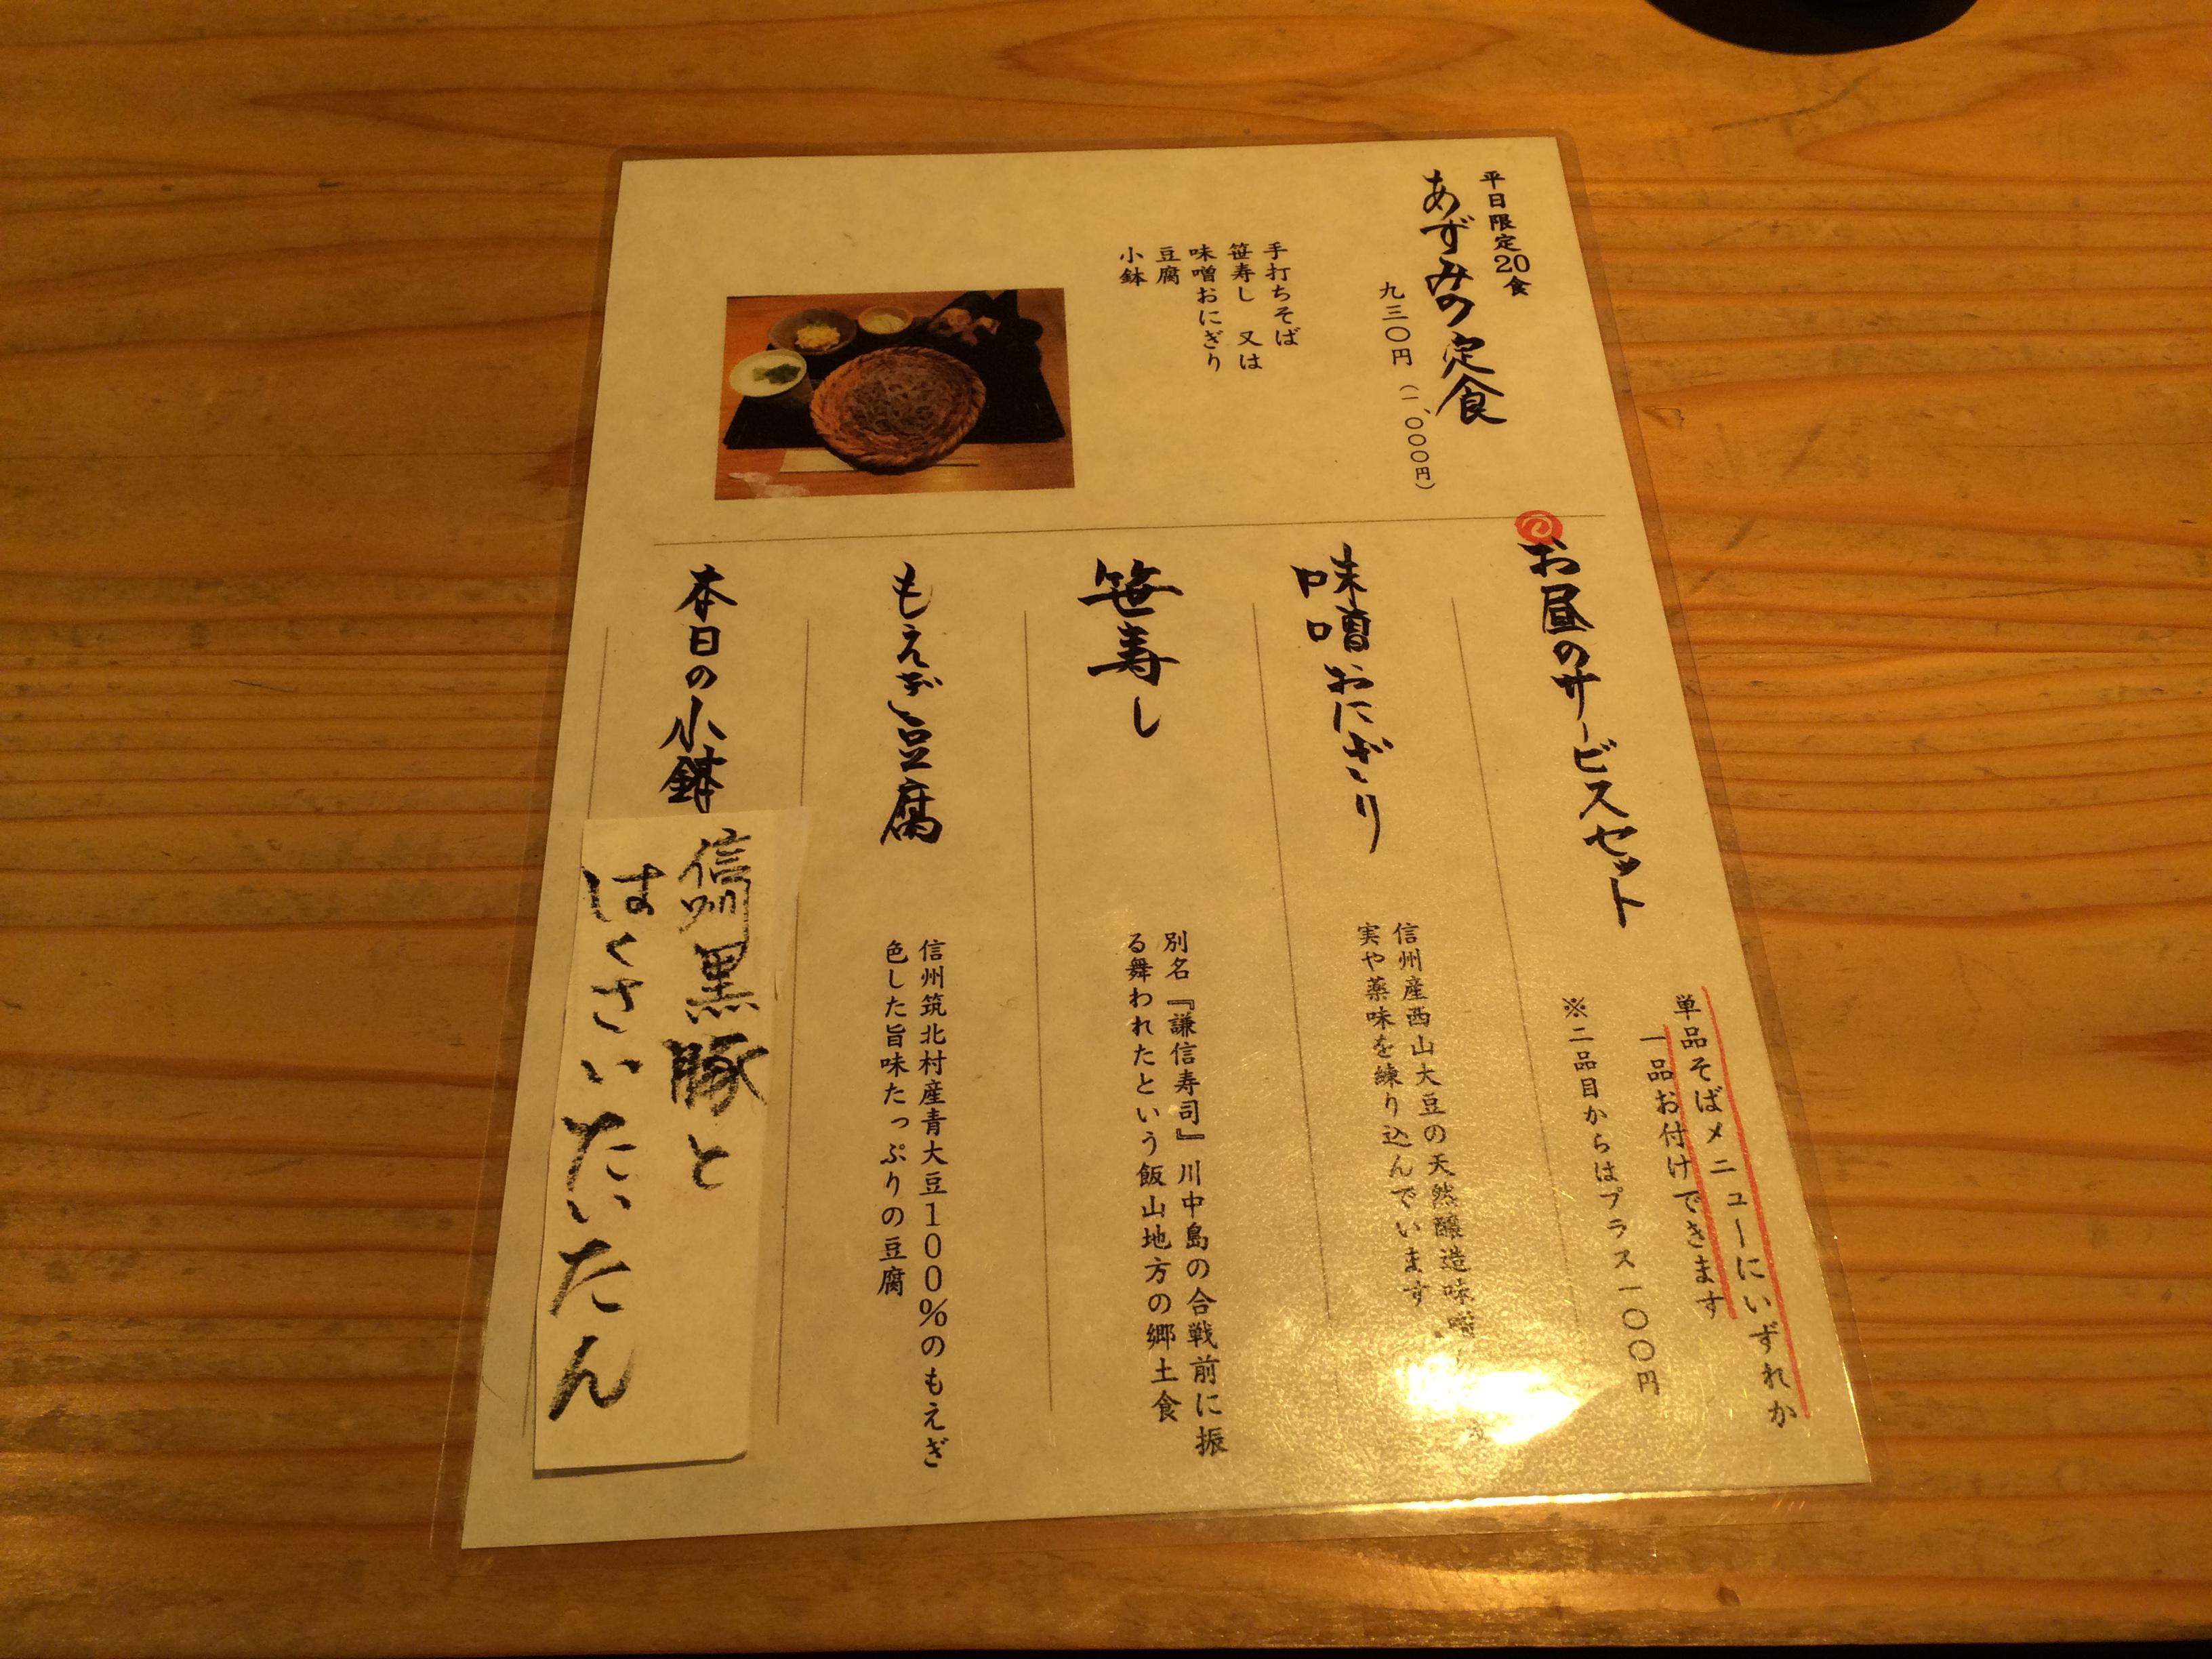 平日限定20食
あずみの定食
九三〇円(一、〇〇〇円)
手打ちそば
笹寿し 又は
味噌おにぎり
豆腐
小鉢
お昼のサービスセット
単品そばメニューにいずれか
一品お付けできます
※二品目からはプラス一〇〇円
味噌おにぎり
信州産西山大豆の天然醸造味噌
実や薬味を練り込んでいます
笹寿し
別名『謙信寿司』川中島の合戦前に振
る舞われたという飯山地方の郷土食
もえぎ豆腐
信州筑北村産青大豆100%のもえぎ
色した旨味たっぷりの豆腐
本日の小鉢
信州黒豚と
はくさいたいたん